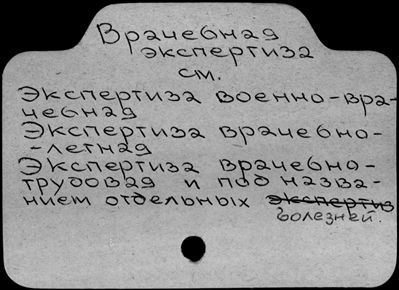 Врачебная
экспертиза
см.
Экспертиза военно-вра-
чебная
Экспертиза врачебно-
-летная
Экспертиза врачебно-
трудовая и под назва-
нием отдельных экспертиз
болезней.